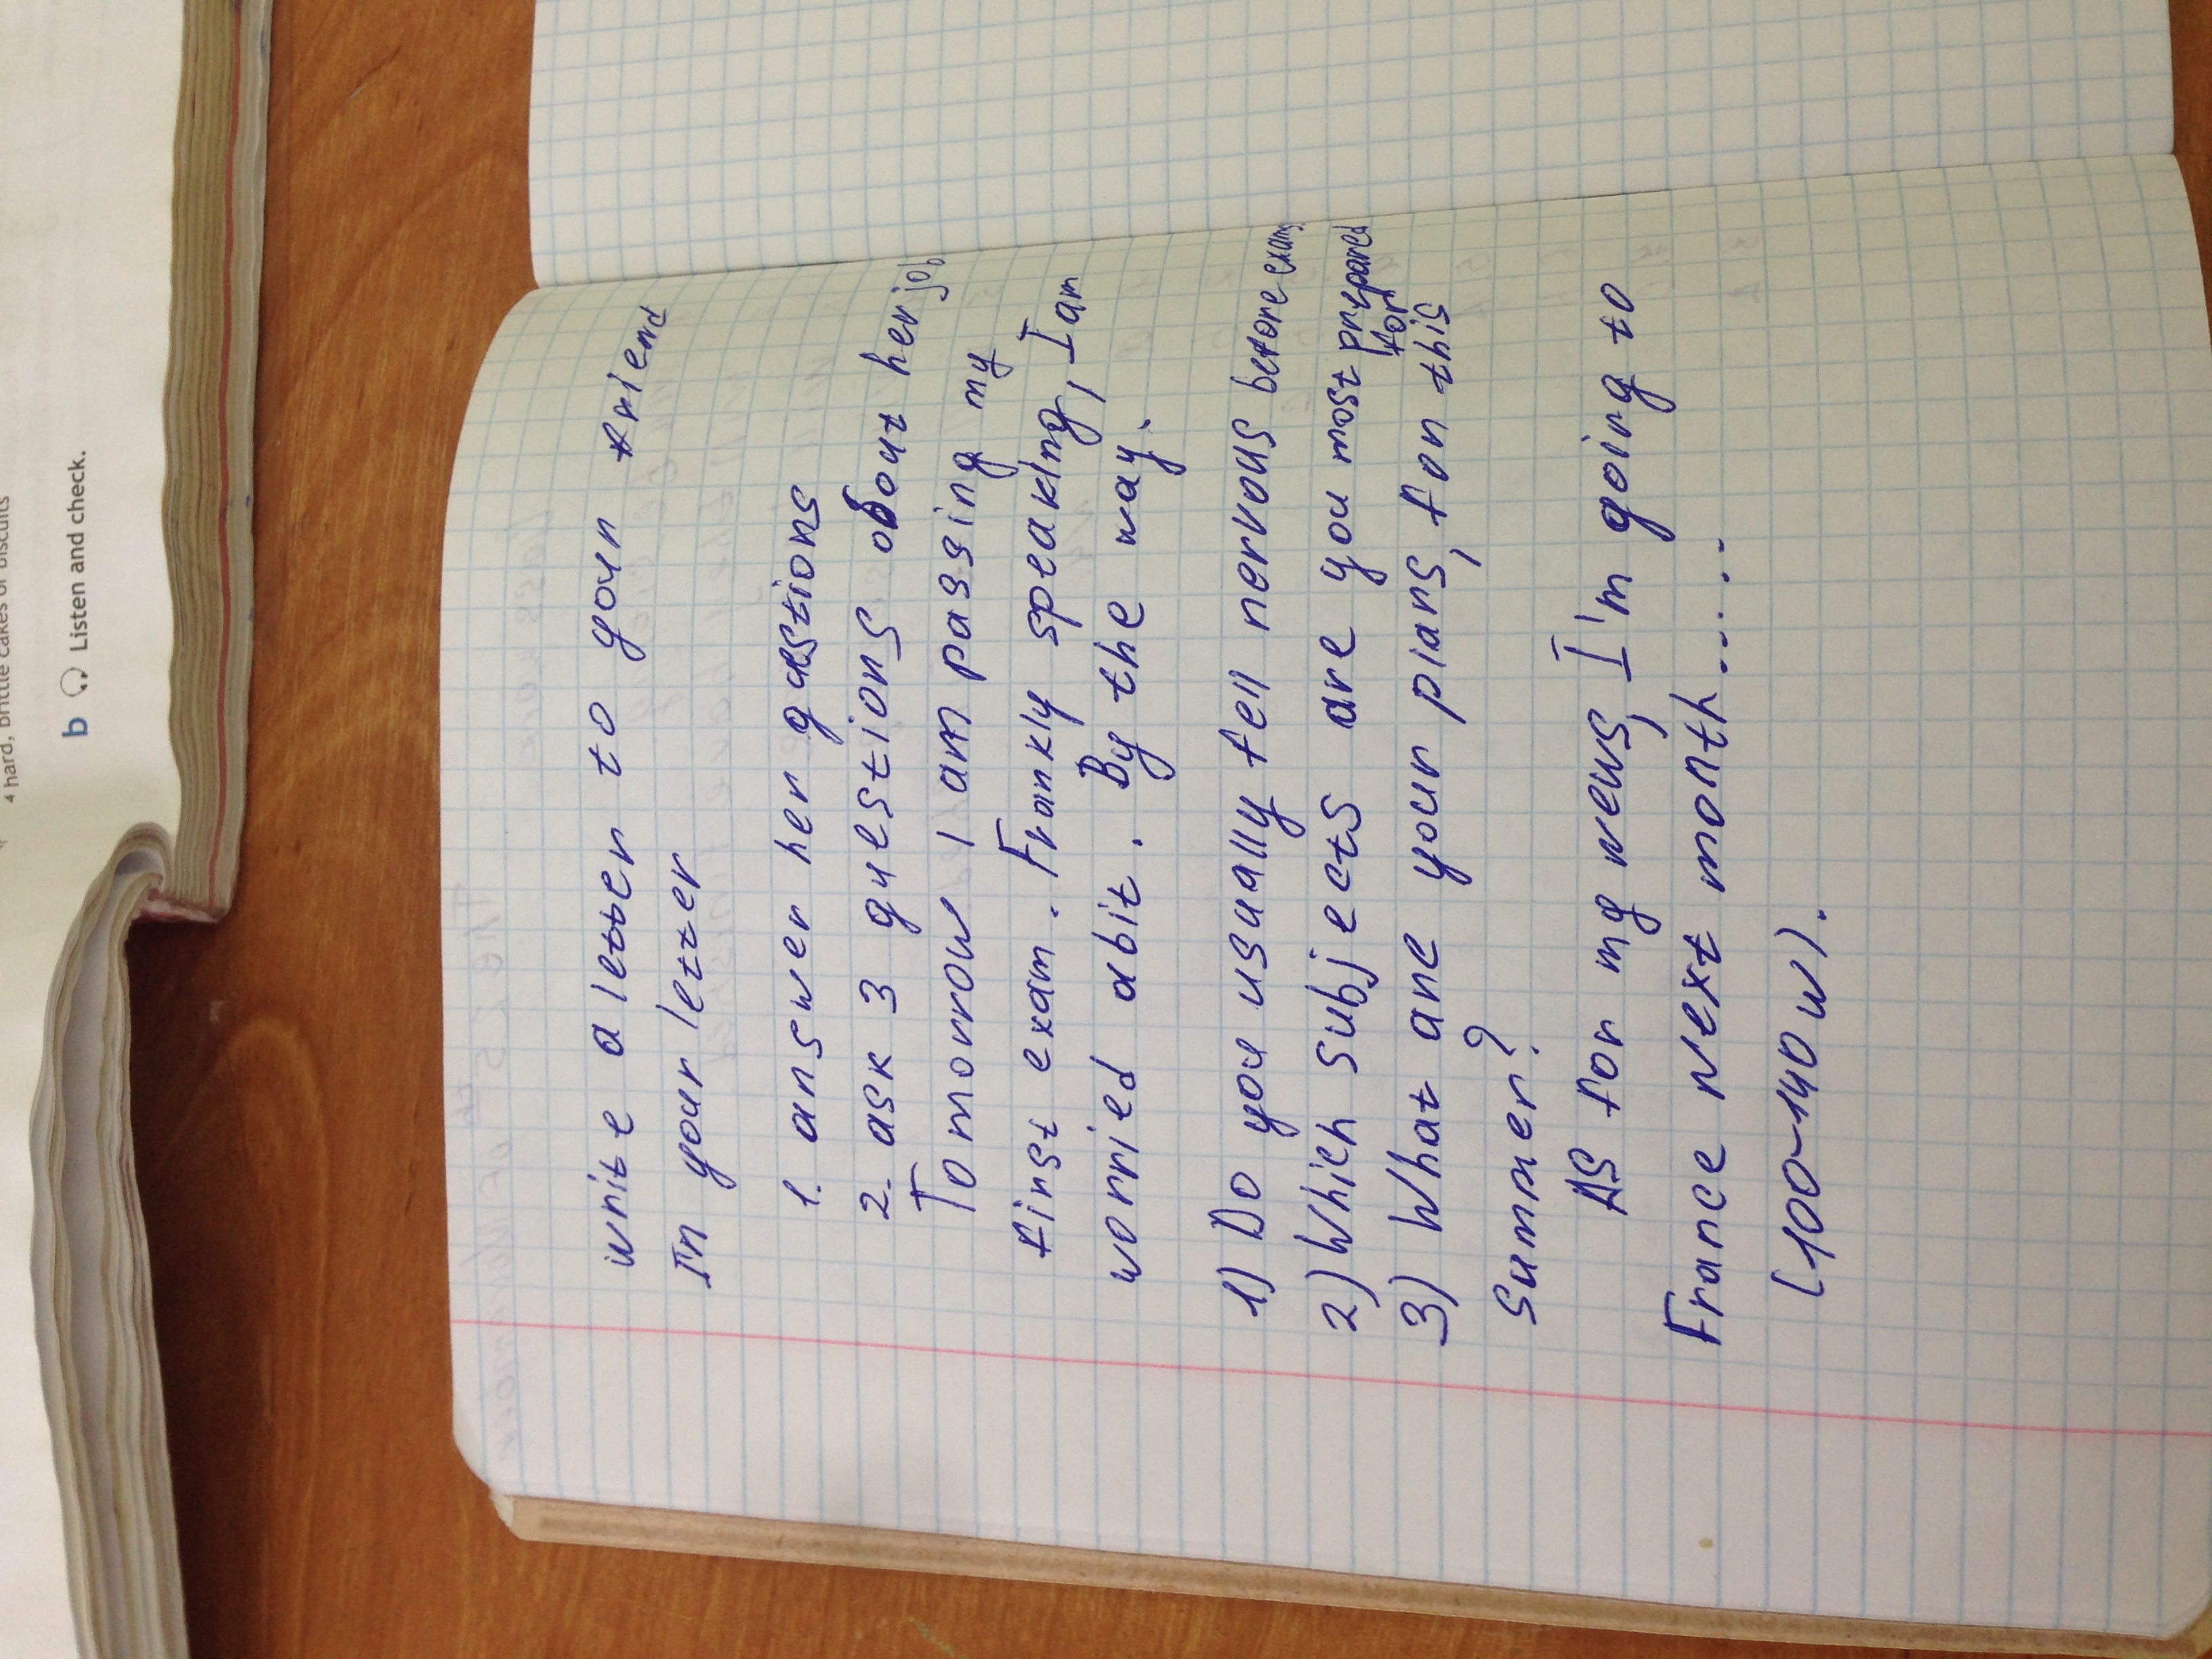 4 hard, brittle cakes or biscuits
b Listen and check.
The 25th of November
Class work
write a letter to your friend
In your letter
1. answer her questions
2. ask 3 questions about her job
Tomorrow I am passing my
first exam. Frankly speaking, I am
worried abit. By the way.
1) Do you usually fell nervous before exams.
2) Which subjects are you most prepared
for
3) What are your plans, for this
summer?
AS for my news, I'm going to
France Next month.....
(100-140 w).